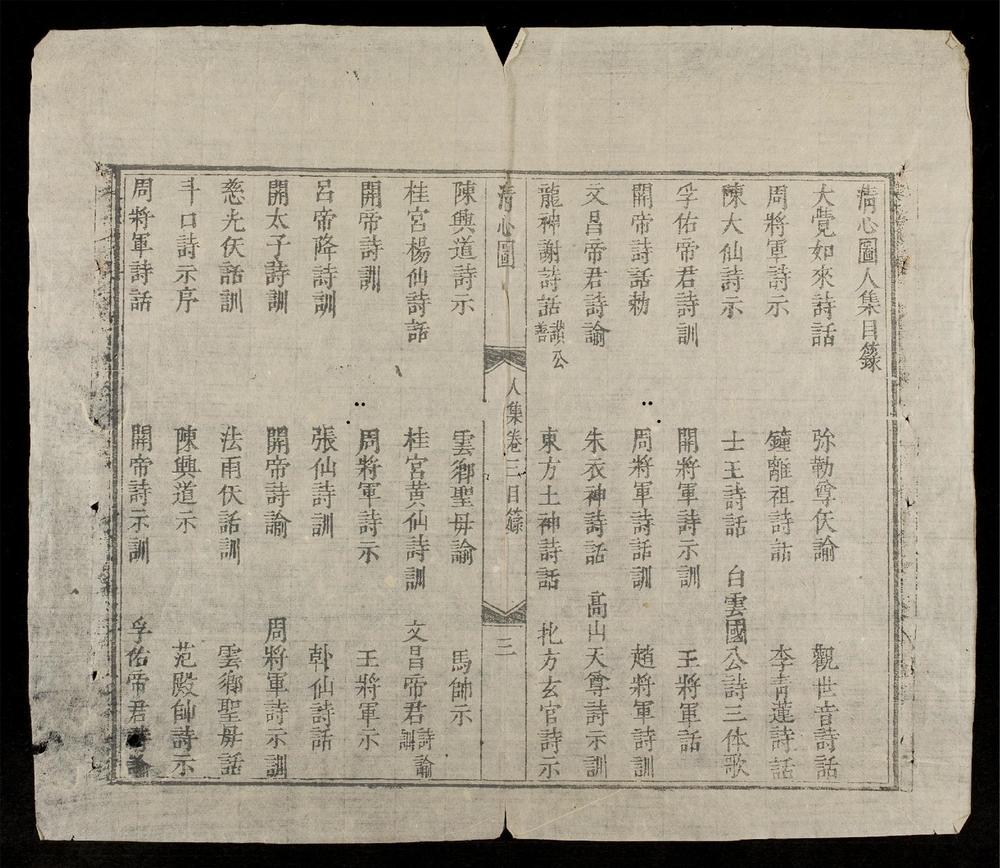 清心圖人集目錄
大覺如來詩話 弥勒尊仸諭 觀世音詩話
周將軍詩示 鐘離祖詩話 李青蓮詩話
陳大仙詩示 士王詩話 白雲國公詩三体歌
孚佑帝君詩訓 開將軍詩示訓 王將軍話
開帝詩話勑 周將軍詩話訓 趙將軍詩訓
文昌帝君詩諭 朱衣神詩話 高山天尊詩示訓
龍神謝詩話 公 東方土神詩話 北方玄官詩示
清心圖 人集卷三目錄 三
陳興道詩示 雲鄉聖母諭 馬帥示
桂宮楊仙詩話 桂宮黃仙詩訓 文昌帝君詩諭訓
開帝詩訓 周將軍詩示 王將軍示
呂帝降詩訓 張仙詩訓 乾仙詩話
開太子詩訓 開帝詩諭 周將軍詩示訓
慈光仸話訓 法雨仸話訓 雲鄉聖母話
斗口詩示序 陳興道示 范殿帥詩示
周將軍詩話 開帝詩示訓 孚佑帝君詩諭